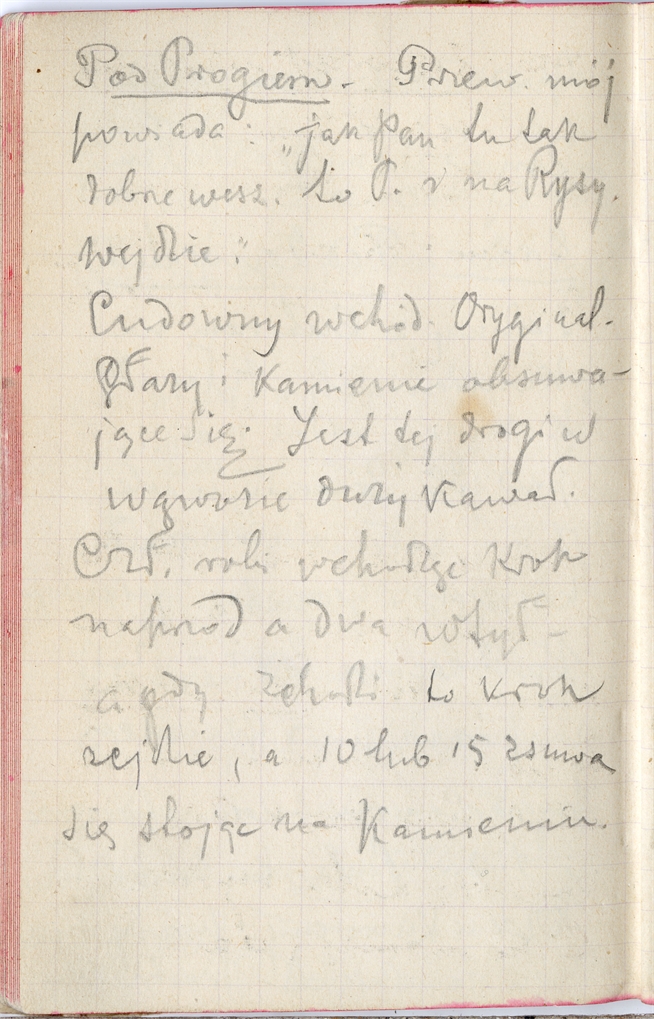 Pod Progiem. Przew. mój
powiada: „jak Pan tu tak
dobrze wesz. to P. i na Rysy.
wejdzie."
Cudowny wchód. Oryginal.
Głazy i Kamienie obsuwa-
jące się. Jest tej drogi w
wąwozie duży Kawał.
Czł. robi wchodząc Krok
naprzód a dwa w tył -
a gdy zchodzi to krok
zejdzie, a 10 lub 15 zsuwa
się stojąc na Kamieniu.